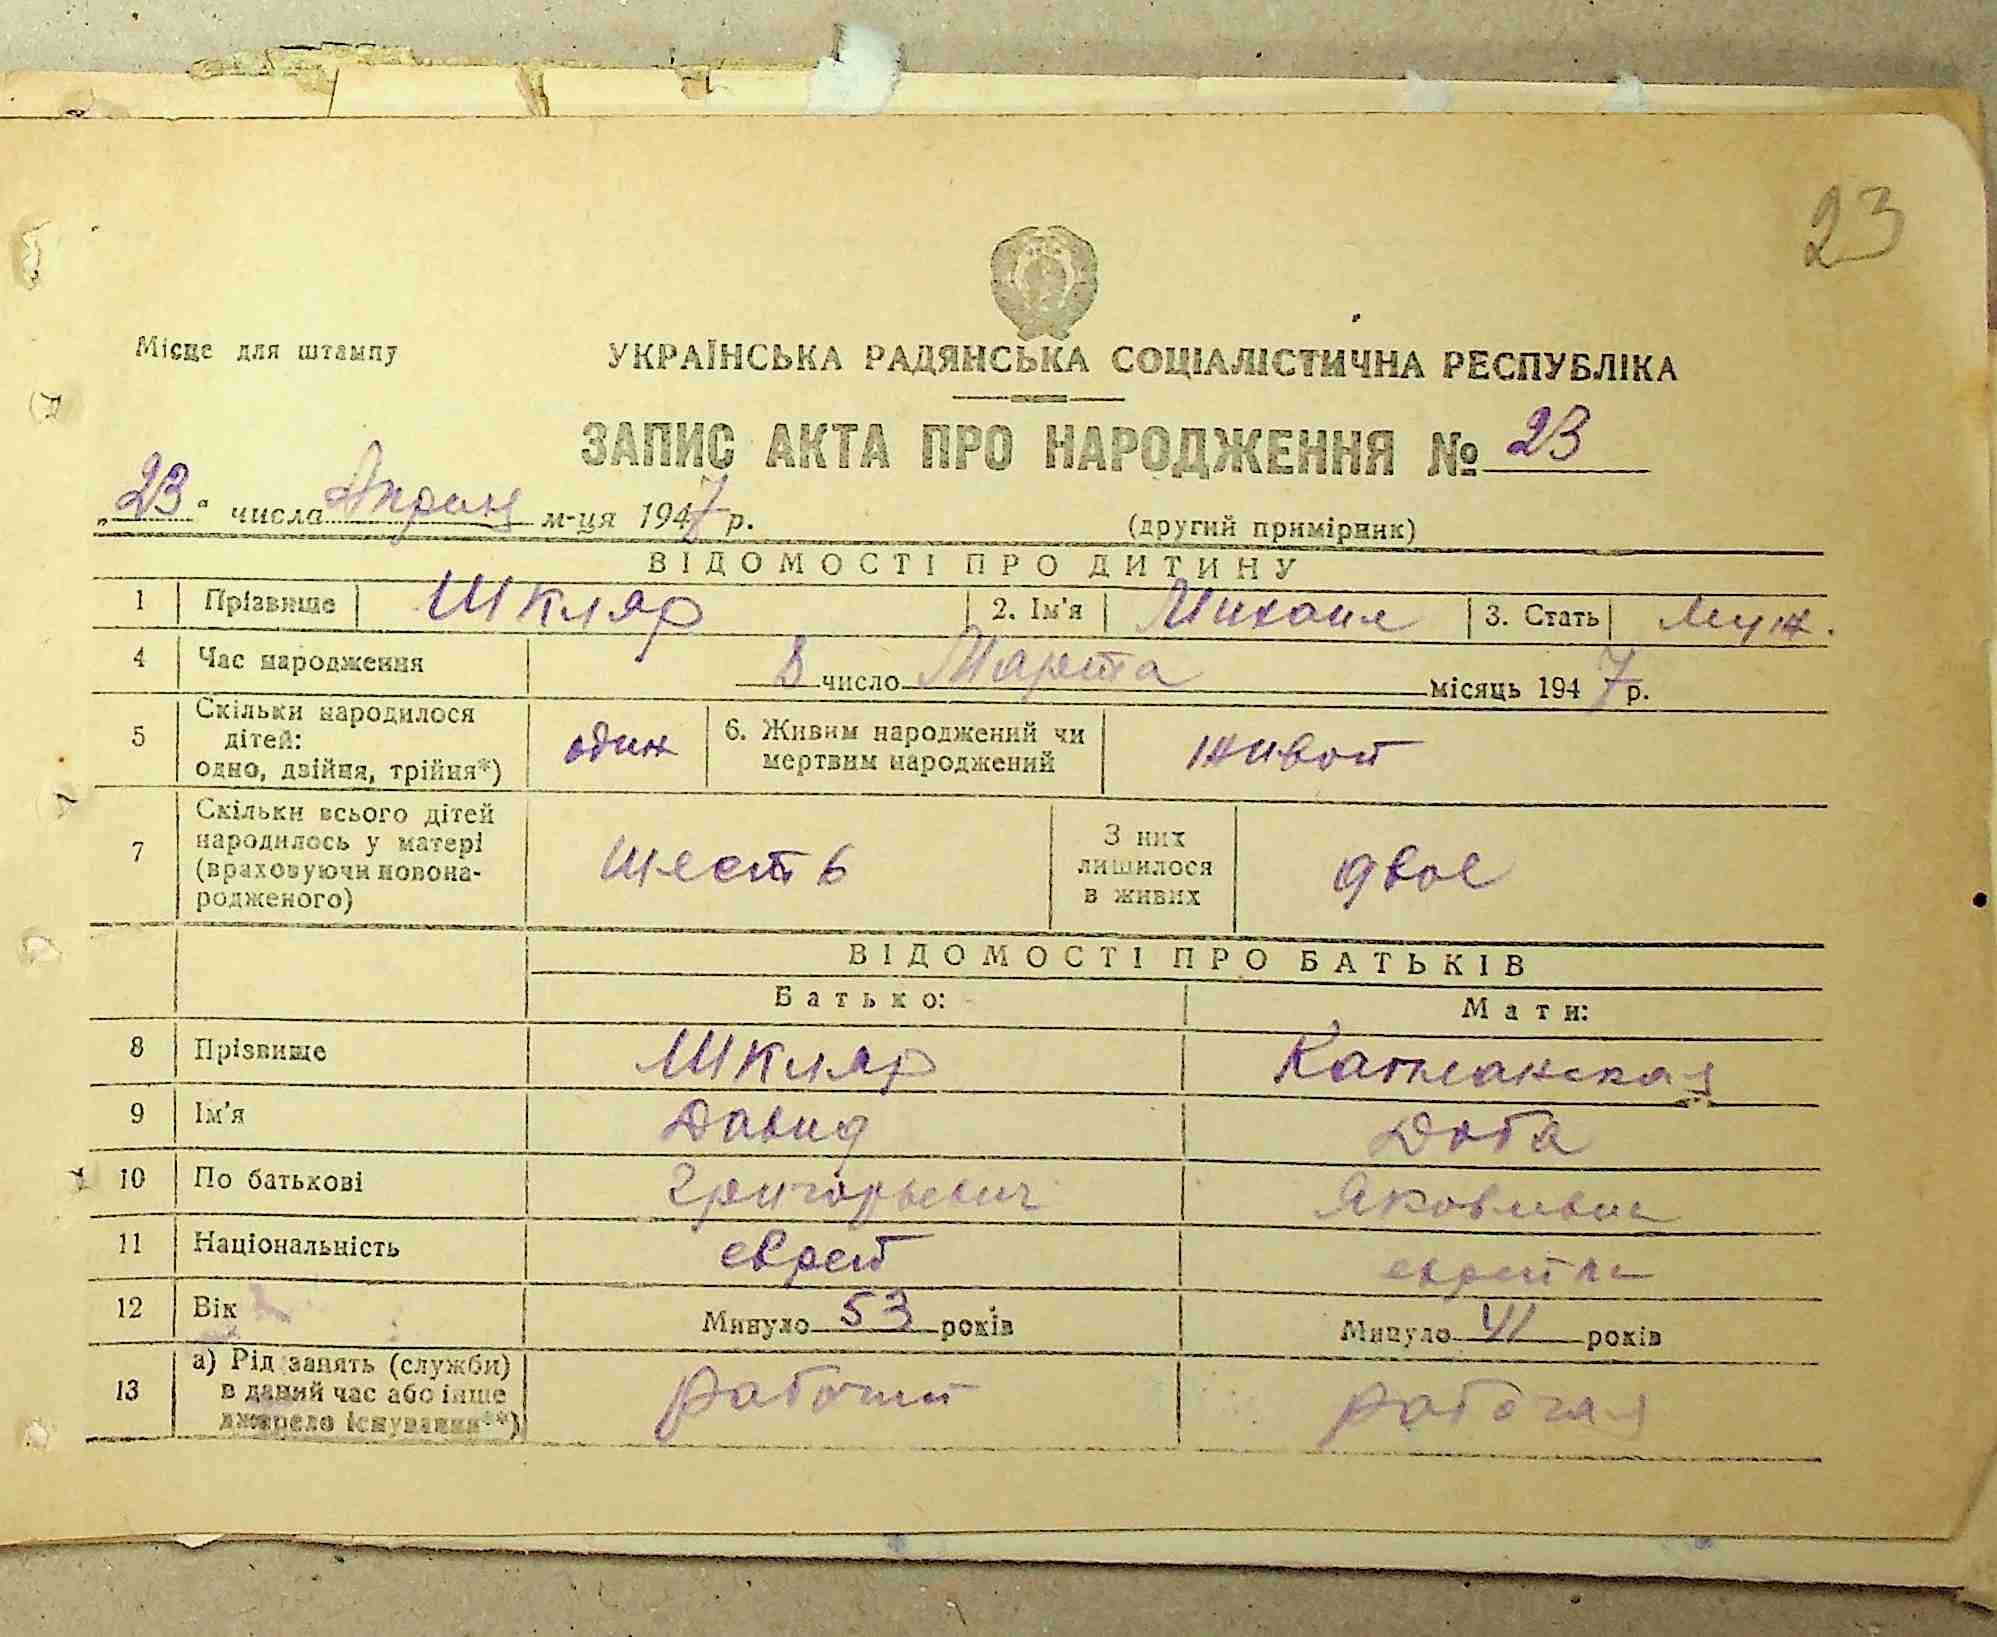 23
Місце для штампу
УКРАЇНСЬКА РАДЯНСЬКА СОЦІАЛІСТИЧНА РЕСПУБЛІКА
ЗАПИС АКТА ПРО НАРОДЖЕННЯ № 23
„23“ числа Апреля м-ця 1947 р.
(другий примірник)
ВІДОМОСТІ ПРО ДИТИНУ
1 Прізвище Шкляр 2. Ім'я Михаил 3. Стать муж.
4 Час народження 8 число Марта місяць 1947 р.
5 Скільки народилося дітей: одно, двійня, трійня*) один 6. Живим народжений чи мертвим народжений живой
7 Скільки всього дітей народилось у матері (враховуючи новонародженого) шесть З них лишилося в живих двое
ВІДОМОСТІ ПРО БАТЬКІВ
Батько: Мати:
8 Прізвище Шкляр
9 Ім'я Давид Доба
10 По батькові Григорьевич Яковлевна
11 Національність еврей еврейка
12 Вік Минуло 53 років Минуло 41 років
13 а) Рід занять (служби) в даний час або інше джерело існування**) рабочий рабочая